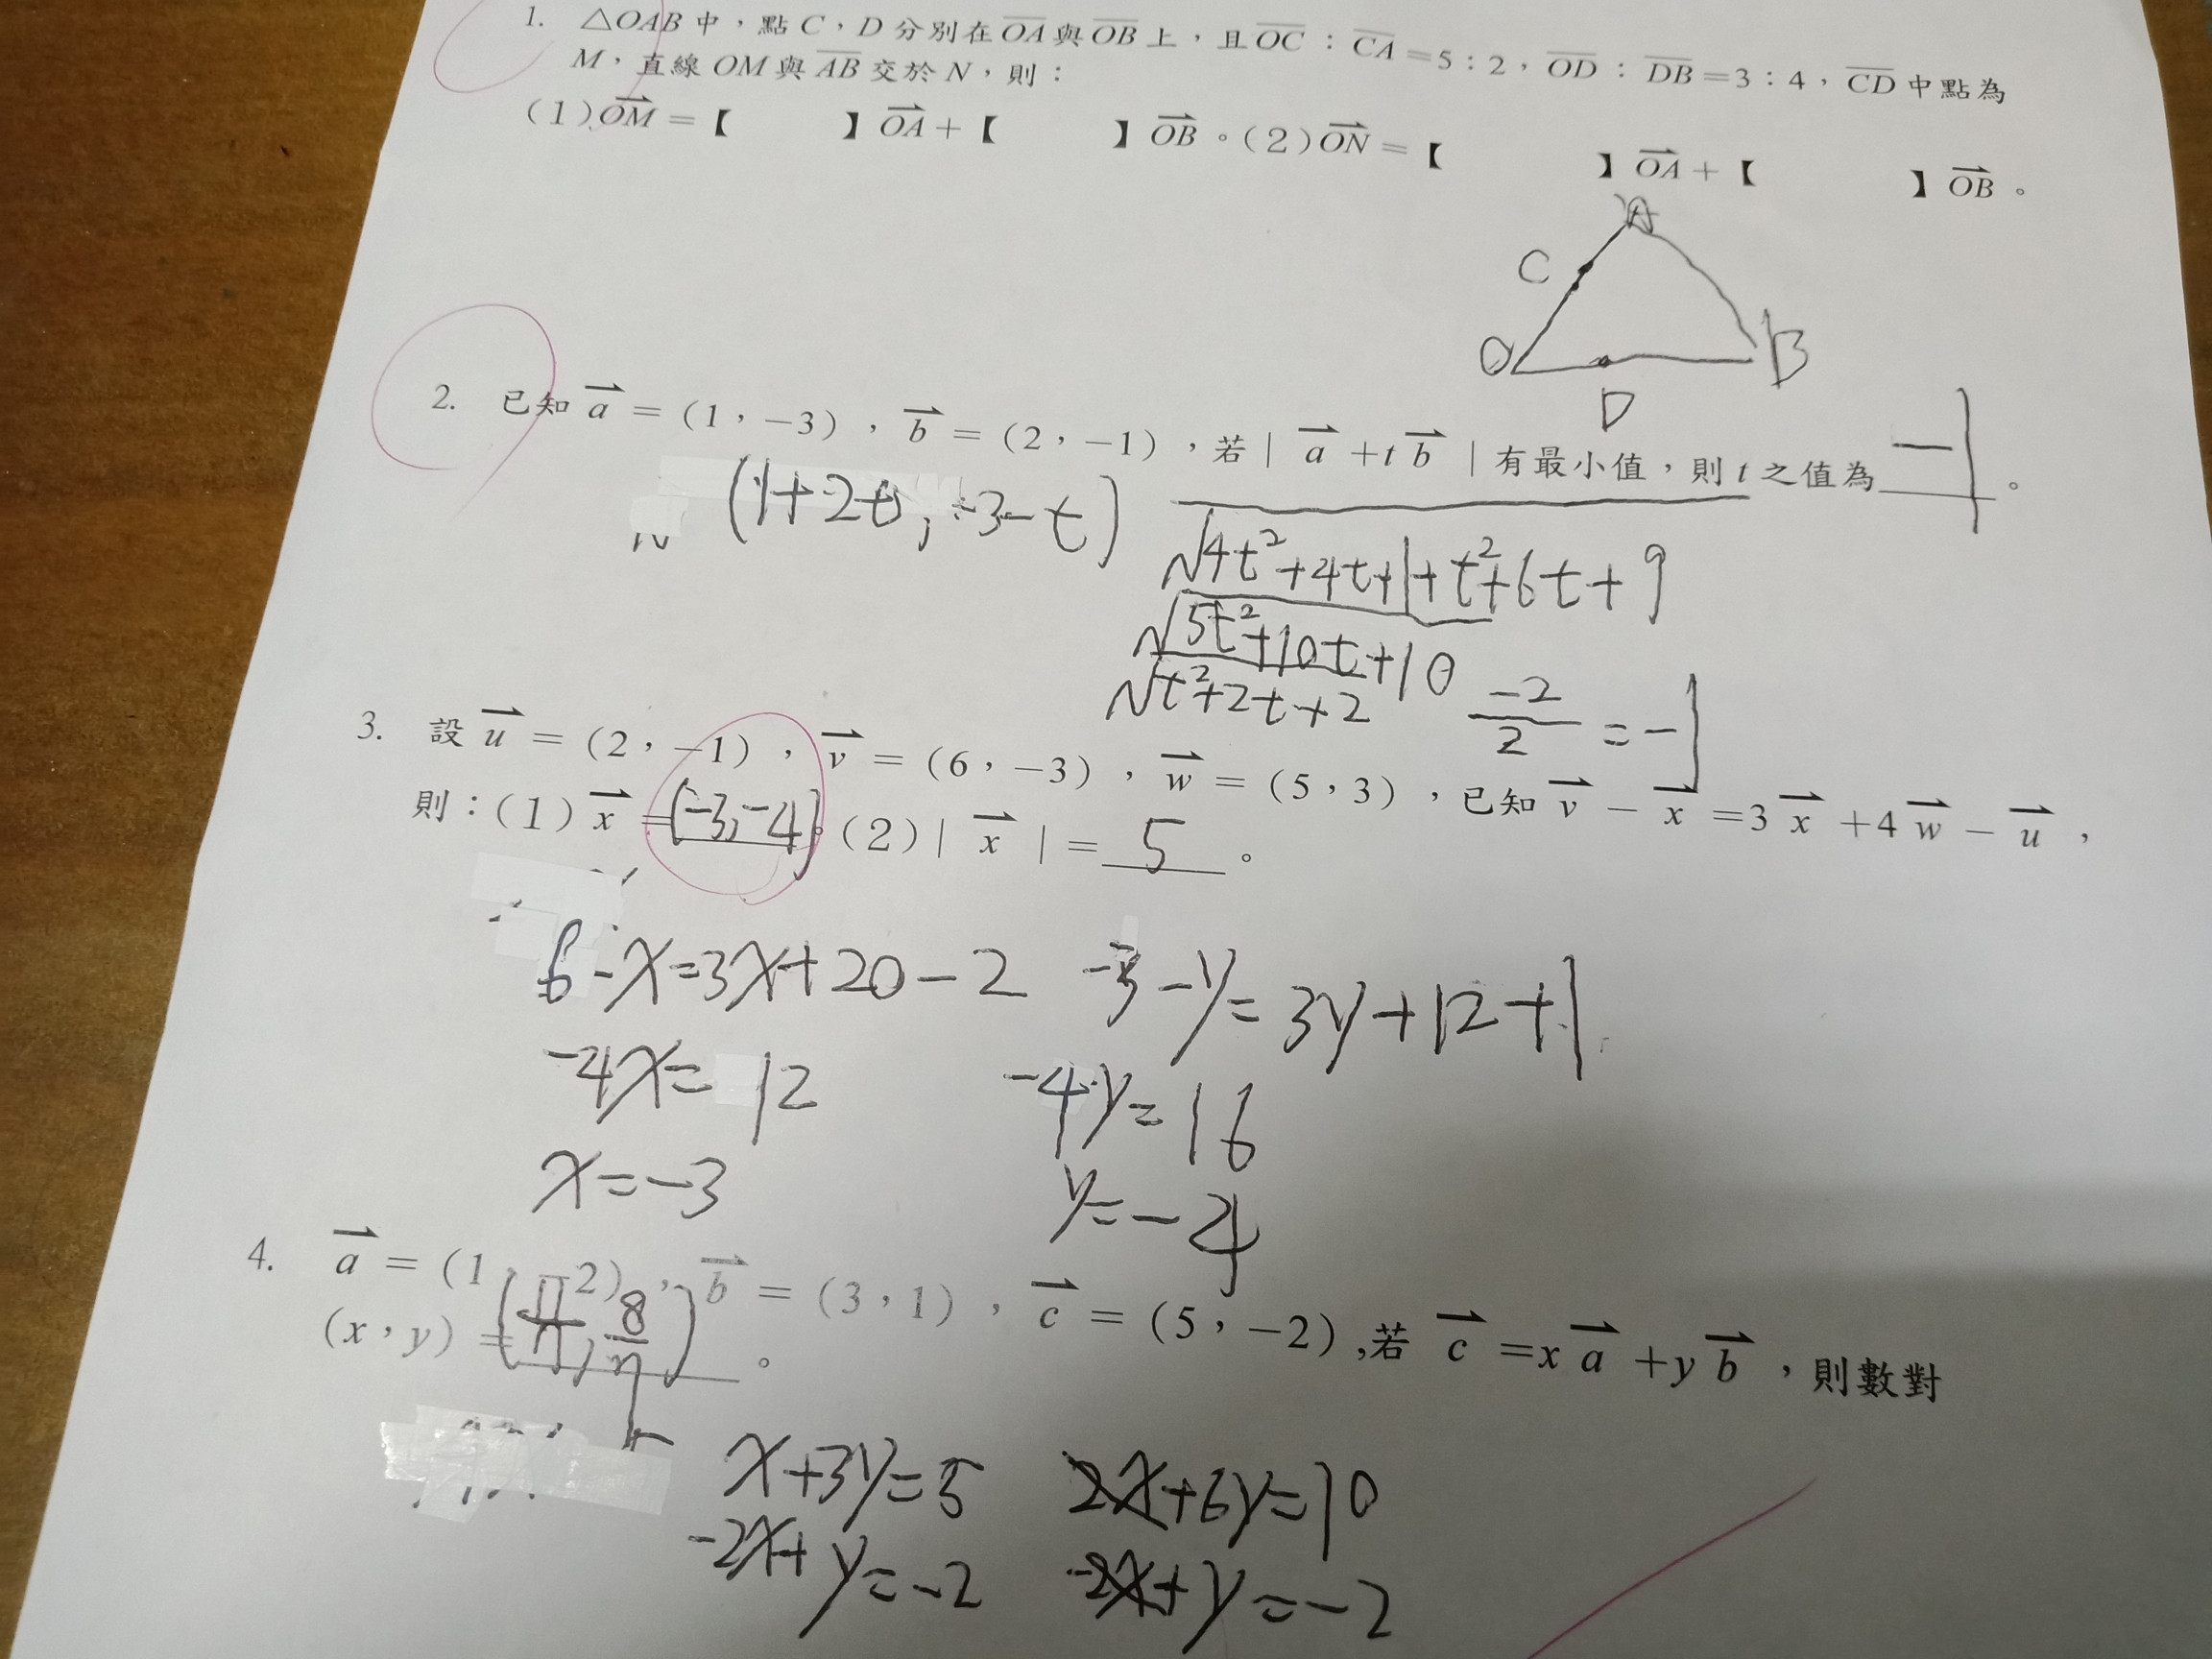 1. △OAB中，點C，D分別在OA與OB上，且OC：CA=5：2，OD：DB=3：4，CD中點為
M，直線OM與AB交於N，則：
(1)OM=【　　】OA+【　　】OB。(2)ON=【　　】OA+【　　】OB。
A
C
O
B
D
2. 已知a=(1，-3)，b=(2，-1)，若|a+tb|有最小值，則t之值為-1。
(1+2t, -3-t)
√4t²+4t+1+t²+6t+9
√5t²+10t+10
√t²+2t+2
-2/2=-1
3. 設u=(2，-1)，v=(6，-3)，w=(5,3)，已知v-x=3x+4w-u，
則：(1)x=(-3,-4)。(2)|x|=5。
6-x=3x+20-2 -3-y=3y+12+1
-4x=12 -4y=16
x=-3 y=-4
4. a=(1，-2)，b=(3,1)，c=(5，-2),若c=xa+yb，則數對
(x，y)=(11/7, 8/7)。
x+3y=5 2x+6y=10
-2x+y=-2 -2x+y=-2